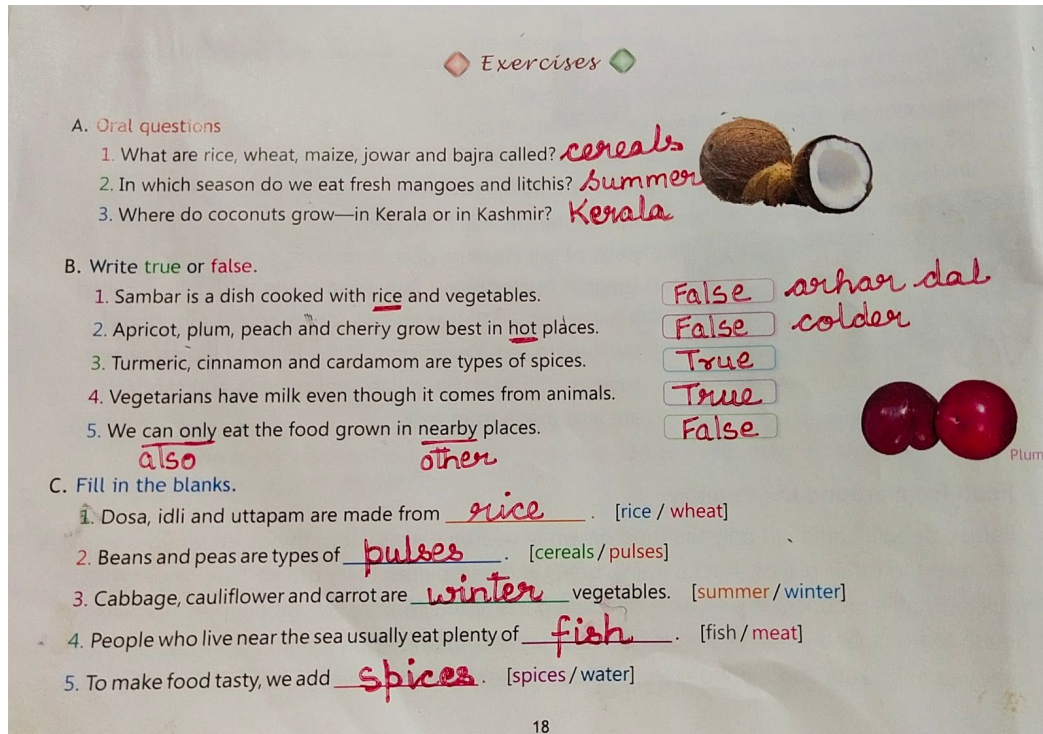 Exercises
A. Oral questions
1. What are rice, wheat, maize, jowar and bajra called? cereals
2. In which season do we eat fresh mangoes and litchis? Summer
3. Where do coconuts grow—in Kerala or in Kashmir? Kerala
B. Write true or false.
1. Sambar is a dish cooked with rice and vegetables. False arhar dal
2. Apricot, plum, peach and cherry grow best in hot places. False colder
3. Turmeric, cinnamon and cardamom are types of spices. True
4. Vegetarians have milk even though it comes from animals. True
5. We can only eat the food grown in nearby places. False
also other
Plum
C. Fill in the blanks.
1. Dosa, idli and uttapam are made from rice. [rice / wheat]
2. Beans and peas are types of pulses. [cereals / pulses]
3. Cabbage, cauliflower and carrot are winter vegetables. [summer / winter]
4. People who live near the sea usually eat plenty of fish. [fish / meat]
5. To make food tasty, we add spices. [spices / water]
18